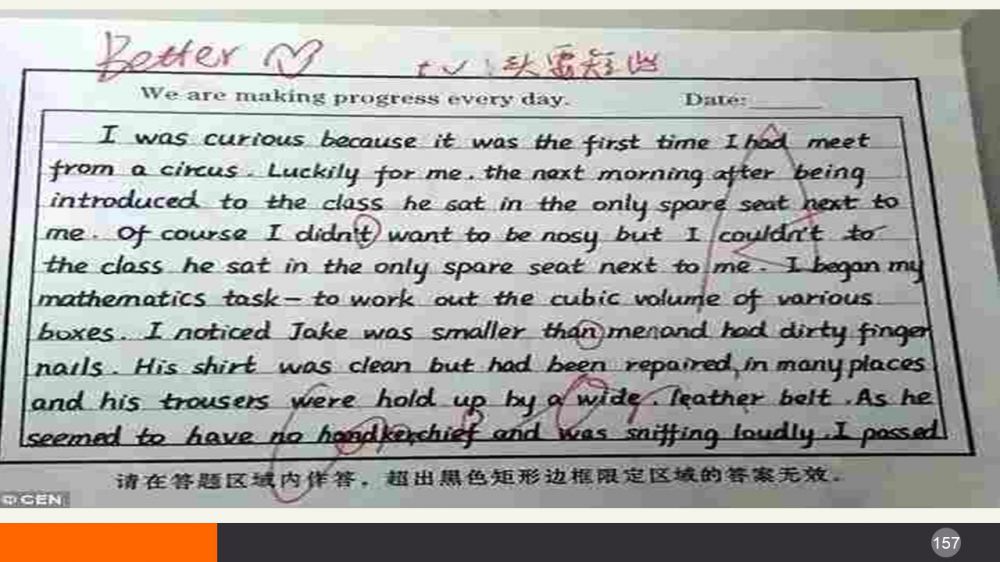 Better
t
We are making progress every day. Date:
I was curious because it was the first time I had meet
from a circus. Luckily for me. the next morning after being
introduced to the class he sat in the only spare seat next to
me. Of course I didn't want to be nosy but I couldn't to
the class he sat in the only spare seat next to me. I began my
mathematics task – to work out the cubic volume of various
boxes. I noticed Jake was smaller than men and had dirty finger
nails. His shirt was clean but had been repaired, in many places
and his trousers were hold up by a wide. leather belt. As he
seemed to have no handkerchief and was sniffing loudly. I passed
请在答题区域内作答，超出黑色矩形边框限定区域的答案无效。
© CEN
157